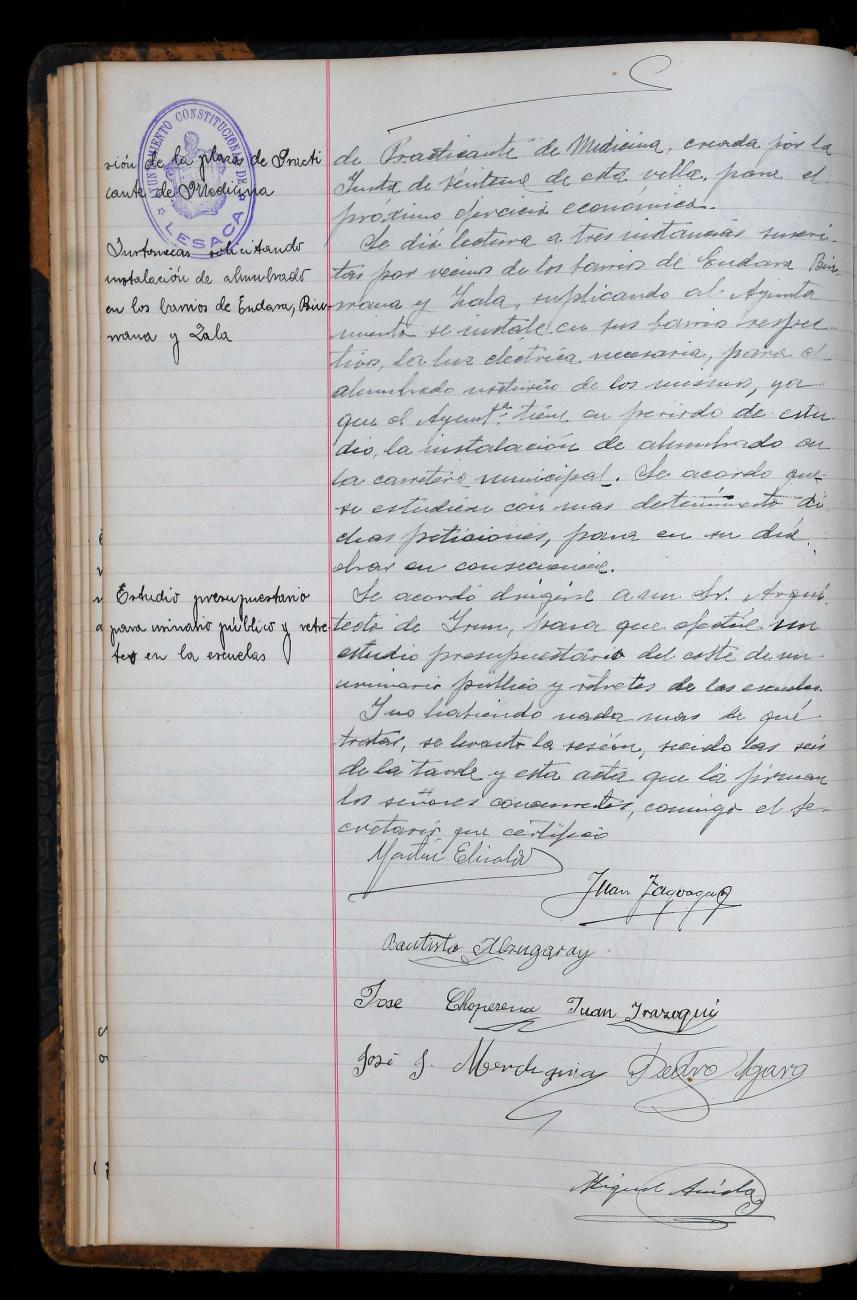 AYUNTAMIENTO CONSTITUCIONAL DE
LESACA
sión de la plaza de Practi
cante de Medicina
Instancias solicitando
instalación de alumbrado
en los barrios de Endara, Biur
rrana y Zala
Estudio presupuestario
para urinario público y retre-
tes en la escuelas
de Practicante de Medicina, creada por la
Junta de Veintena de esta villa, para el
próximo ejercicio económico.
Se dió lectura a tres instancias suscri-
tas por vecinos de los barrios de Endara Biur-
rrana y Zala, suplicando al Ayunta
miento se instale en sus barrios respec-
tivos, la luz eléctrica necesaria, para el
alumbrado nocturno de los mismos, ya
que el Ayuntº tiene en periodo de estu-
dio, la instalación de alumbrado en
la carretera municipal. Se acordo que
se estudien con mas detenimiento di
chas peticiones, para en su dia
obrar en consecuencia.
Se acordó dirigirse a un Sr. Arqui
tecto de Irun, para que efectúe un
estudio presupuestario del coste de un
urinario público y retretes de las escuelas.
Y no habiendo nada mas de qué
tratar, se levantó la sesión, siendo las seis
de la tarde y esta acta que la firman
los señores concurrentes, conmigo el Se-
cretario que certifico
Martin Elizalde
Juan
Bautista Alzugaray
Jose Choperena Juan Irazoqui
José J. Mendiguia Pedro
Miguel